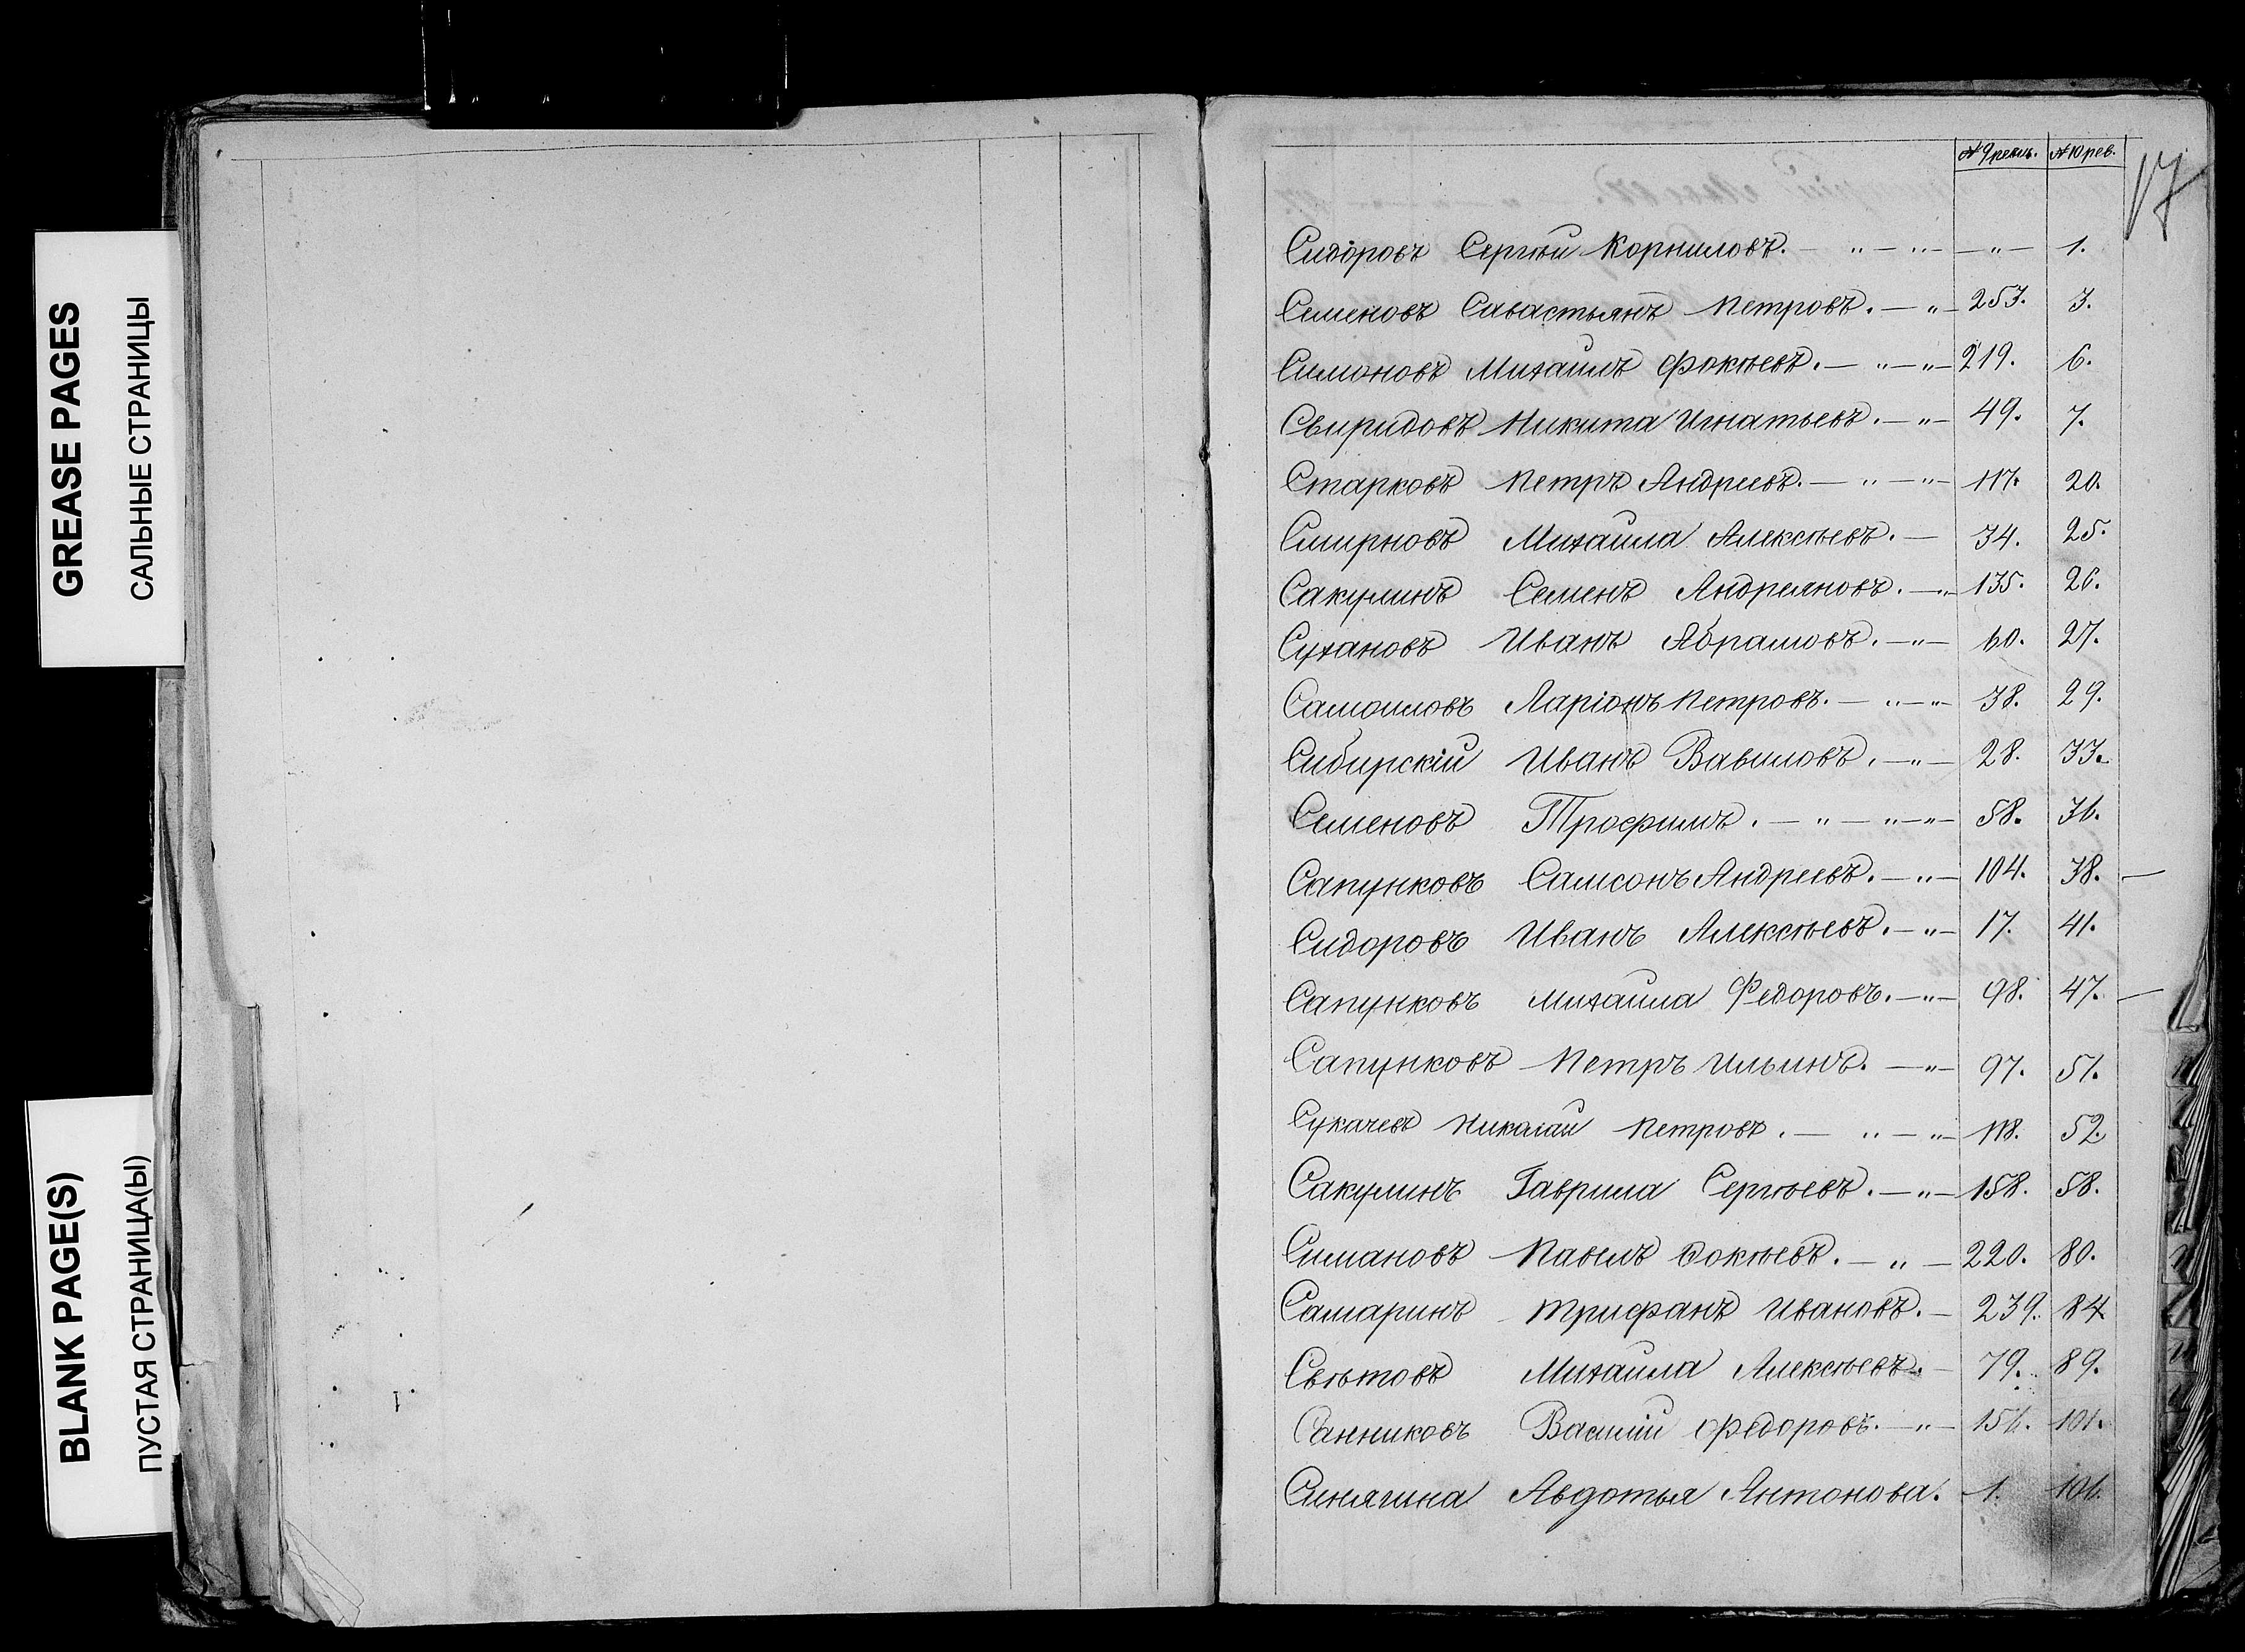 GREASE PAGES
САЛЬНЫЕ СТРАНИЦЫ
BLANK PAGE(S)
ПУСТАЯ СТРАНИЦА(Ы)
17
№ 9 ревиз. № 10 рев.
Сидоровъ Сергѣй Корниловъ. — „ — „ — — „ — 1.
Семеновъ Савастьянъ Петровъ. — „ — 253. 3.
Симоновъ Михаилъ Фокѣевъ. — „ — „ — 219. 6.
Свиридовъ Никита Игнатьевъ. — „ — 49. 7.
Старковъ Петръ Андреевъ. — „ — „ — 117. 20.
Смирновъ Михайла Алексѣевъ. — 34. 25.
Сакулинъ Семенъ Андреяновъ. — „ — 135. 26.
Сухановъ Иванъ Абрамовъ. — „ — 60. 27.
Самоиловъ Ларіонъ Петровъ. — „ — „ — 38. 29.
Сибирскій Иванъ Вавиловъ. — „ — 28. 33.
Семеновъ Трофимъ. — „ — „ — „ — 58. 36.
Сапунковъ Самсонъ Андреевъ. — „ — 104. 38. —
Сидоровъ Иванъ Алексѣевъ. — „ — 17. 41.
Сапунковъ Михаила Федоровъ. — „ — 98. 47. —
Сапунковъ Петръ Ильинъ. — „ — 97. 51.
Сукачевъ Николай Петровъ. — „ — „ — 118. 52.
Сакулинъ Гаврила Сергѣевъ. — „ — 158. 58.
Симановъ Павелъ Ѳокѣевъ. — „ — 220. 80.
Самаринъ Трифанъ Ивановъ. — 239. 84
Свѣтовъ Михаила Алексѣевъ. — 79. 89.
Санниковъ Василій Федоровъ. — „ — 156. 101.
Синягина Авдотья Антонова. 1. 101.